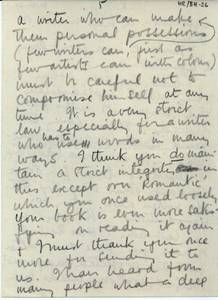 5
HR/BH-26
a writer who can make
them personal possessions
(few writers can, just as
few artists can with colour)
must be careful not to
compromise himself at any
time. It is a very strict
law especially for a writer
who has to use words in many
ways. I think you do main-
tain a strict integrity in
this except over 'Romantic'
which you once used loosely.
Your book is even more satis-
fying on reading it again
I must thank you once
more for sending it to
us. I have heard from
many people what a deep